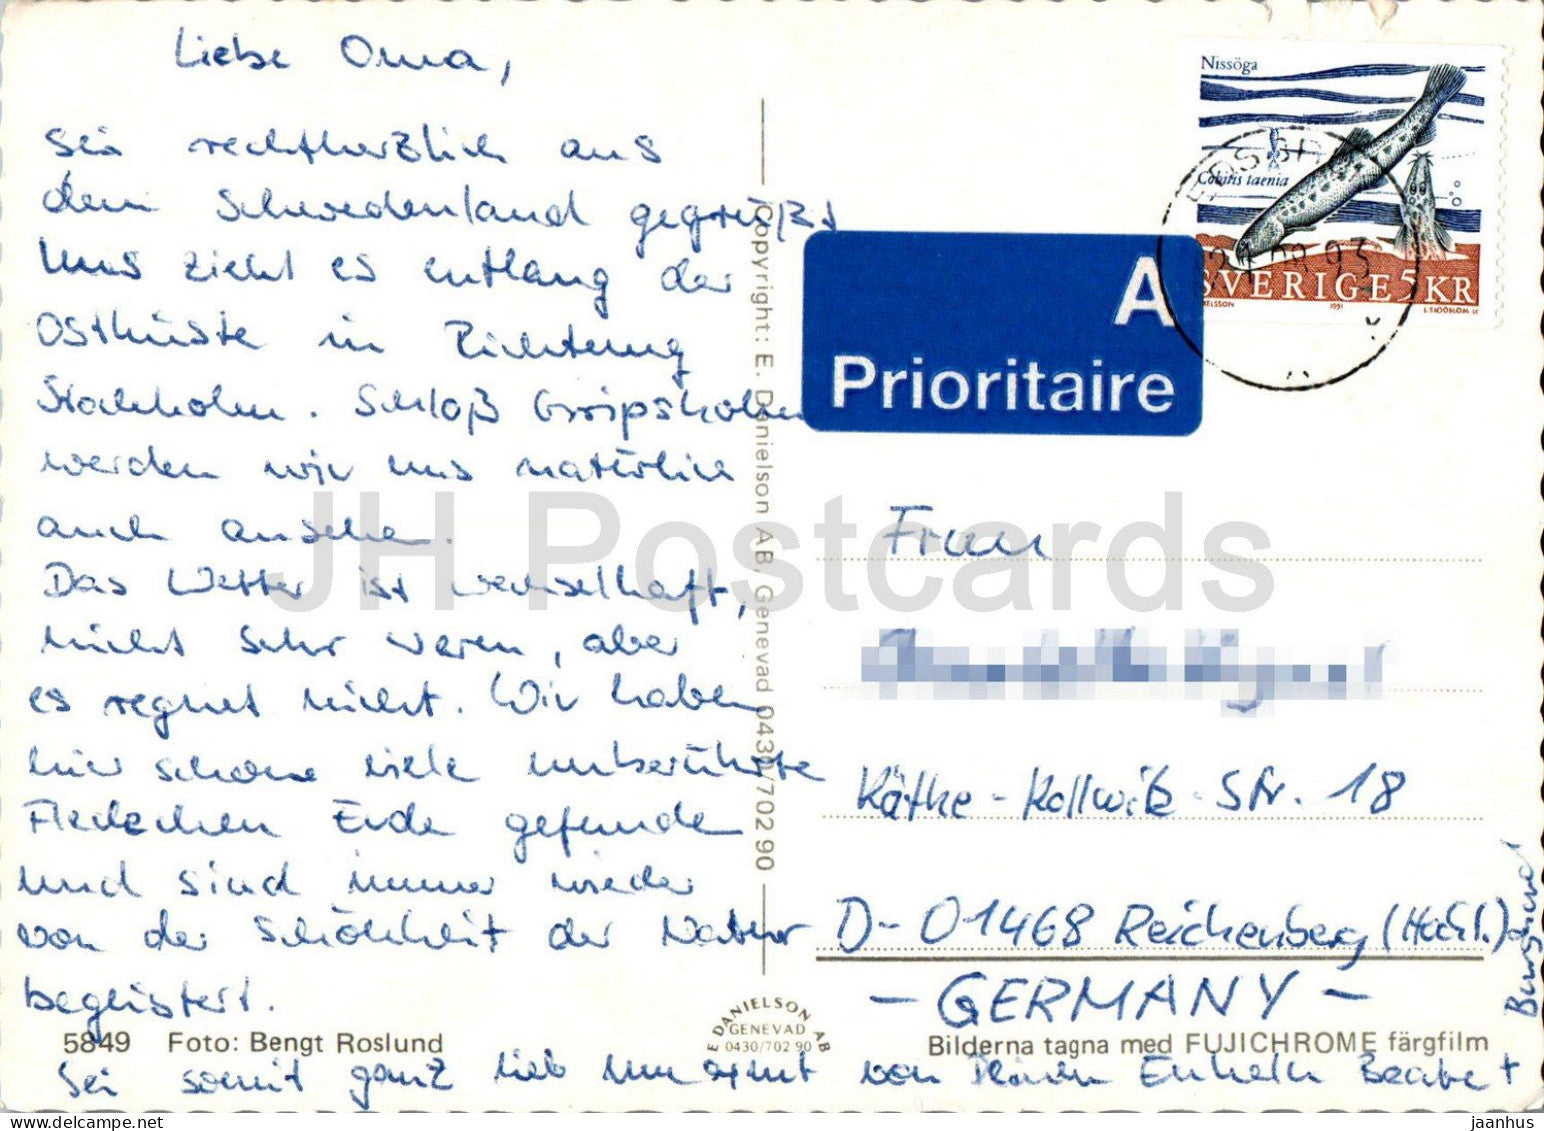 Liebe Oma,
sei rechtherzlich aus
dem Schwedenland gegrüßt
Uns zieht es entlang der
Ostküste in Richtung
Stockholm. Schloß Gripsholm
werden wir uns natürlich
auch ansehen.
Das Wetter ist wechselhaft,
nicht sehr warm, aber
es regnet nicht. Wir haben
hier schone viele unberührte
Fleckchen Erde gefunden
und sind immer wieder
von der Schönheit der Natur
begeistert.
Sei somit ganz lieb umarmt von Deinen Enkeln Beate +
Burghard
5849 Foto: Bengt Roslund
Copyright: E. Danielson AB, Genevad 0430/702 90
E DANIELSON AB
GENEVAD
0430/702 90
Bilderna tagna med FUJICHROME färgfilm
A
Prioritaire
Nissöga
Cobitis taenia
SVERIGE 5 KR
1991
L SJÖÖBLOM SC
Frau
Käthe-Kollwitz-Str. 18
D-01468 Reichenberg
- GERMANY -
JH Postcards
jaanhus
delcampe.net